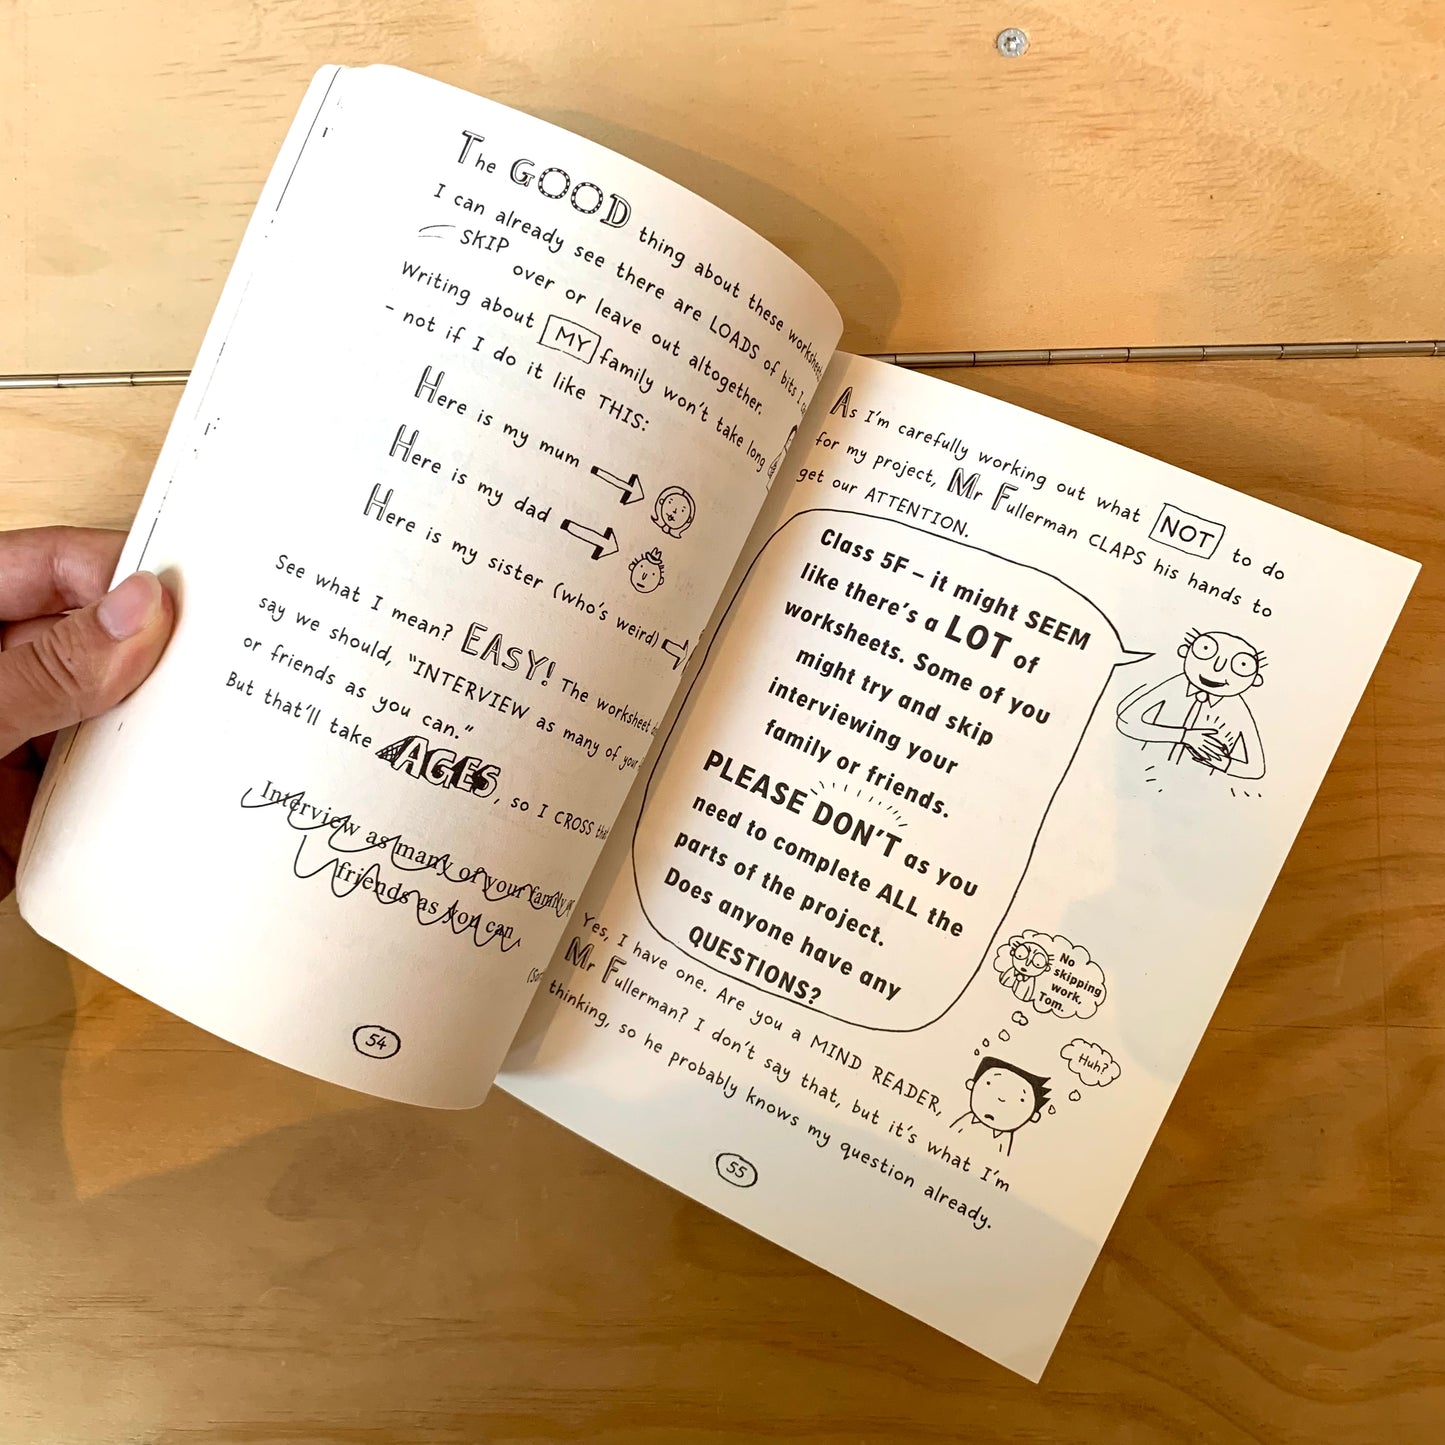 The GOOD thing about these worksheets
I can already see there are LOADS of bits I
SKIP over or leave out altogether.
Writing about MY family won't take long
- not if I do it like THIS:
Here is my mum
Here is my dad
Here is my sister (who's weird)
See what I mean? EASY! The worksheet
say we should, "INTERVIEW as many of your
or friends as you can."
But that'll take AGES, so I CROSS
Interview as many of your family or
friends as you can.
54
As I'm carefully working out what NOT to do
for my project, Mr Fullerman CLAPS his hands to
get our ATTENTION.
Class 5F – it might SEEM
like there's a LOT of
worksheets. Some of you
might try and skip
interviewing your
family or friends.
PLEASE DON'T as you
need to complete ALL the
parts of the project.
Does anyone have any
QUESTIONS?
No
skipping
work,
Tom.
Huh?
Yes, I have one. Are you a MIND READER,
Mr Fullerman? I don't say that, but it's what I'm
thinking, so he probably knows my question already.
55